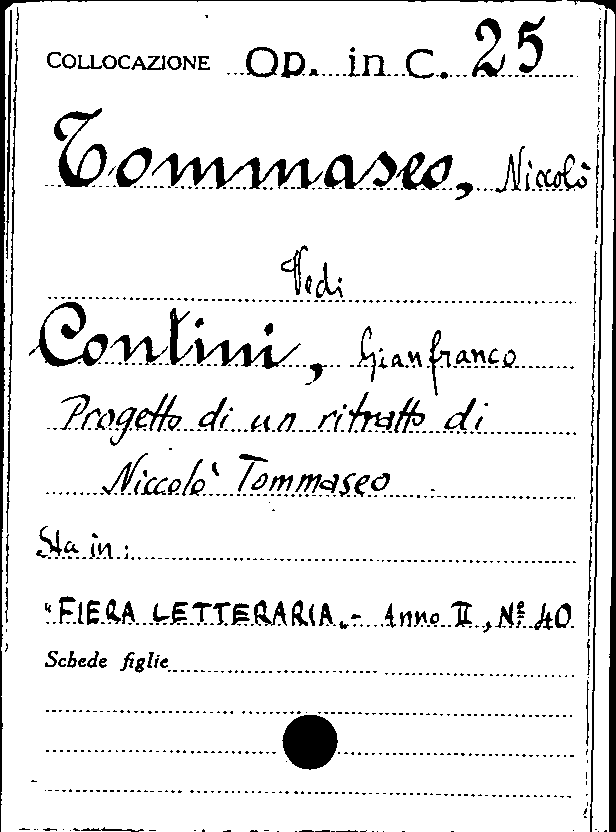 COLLOCAZIONE Op. in C. 25
Tommaseo, Niccolò
Vedi
Contini, Gianfranco
Progetto di un ritratto di
Niccolò Tommaseo
Sta in:
"FIERA LETTERARIA„ - Anno II, Nº 40
Schede figlie